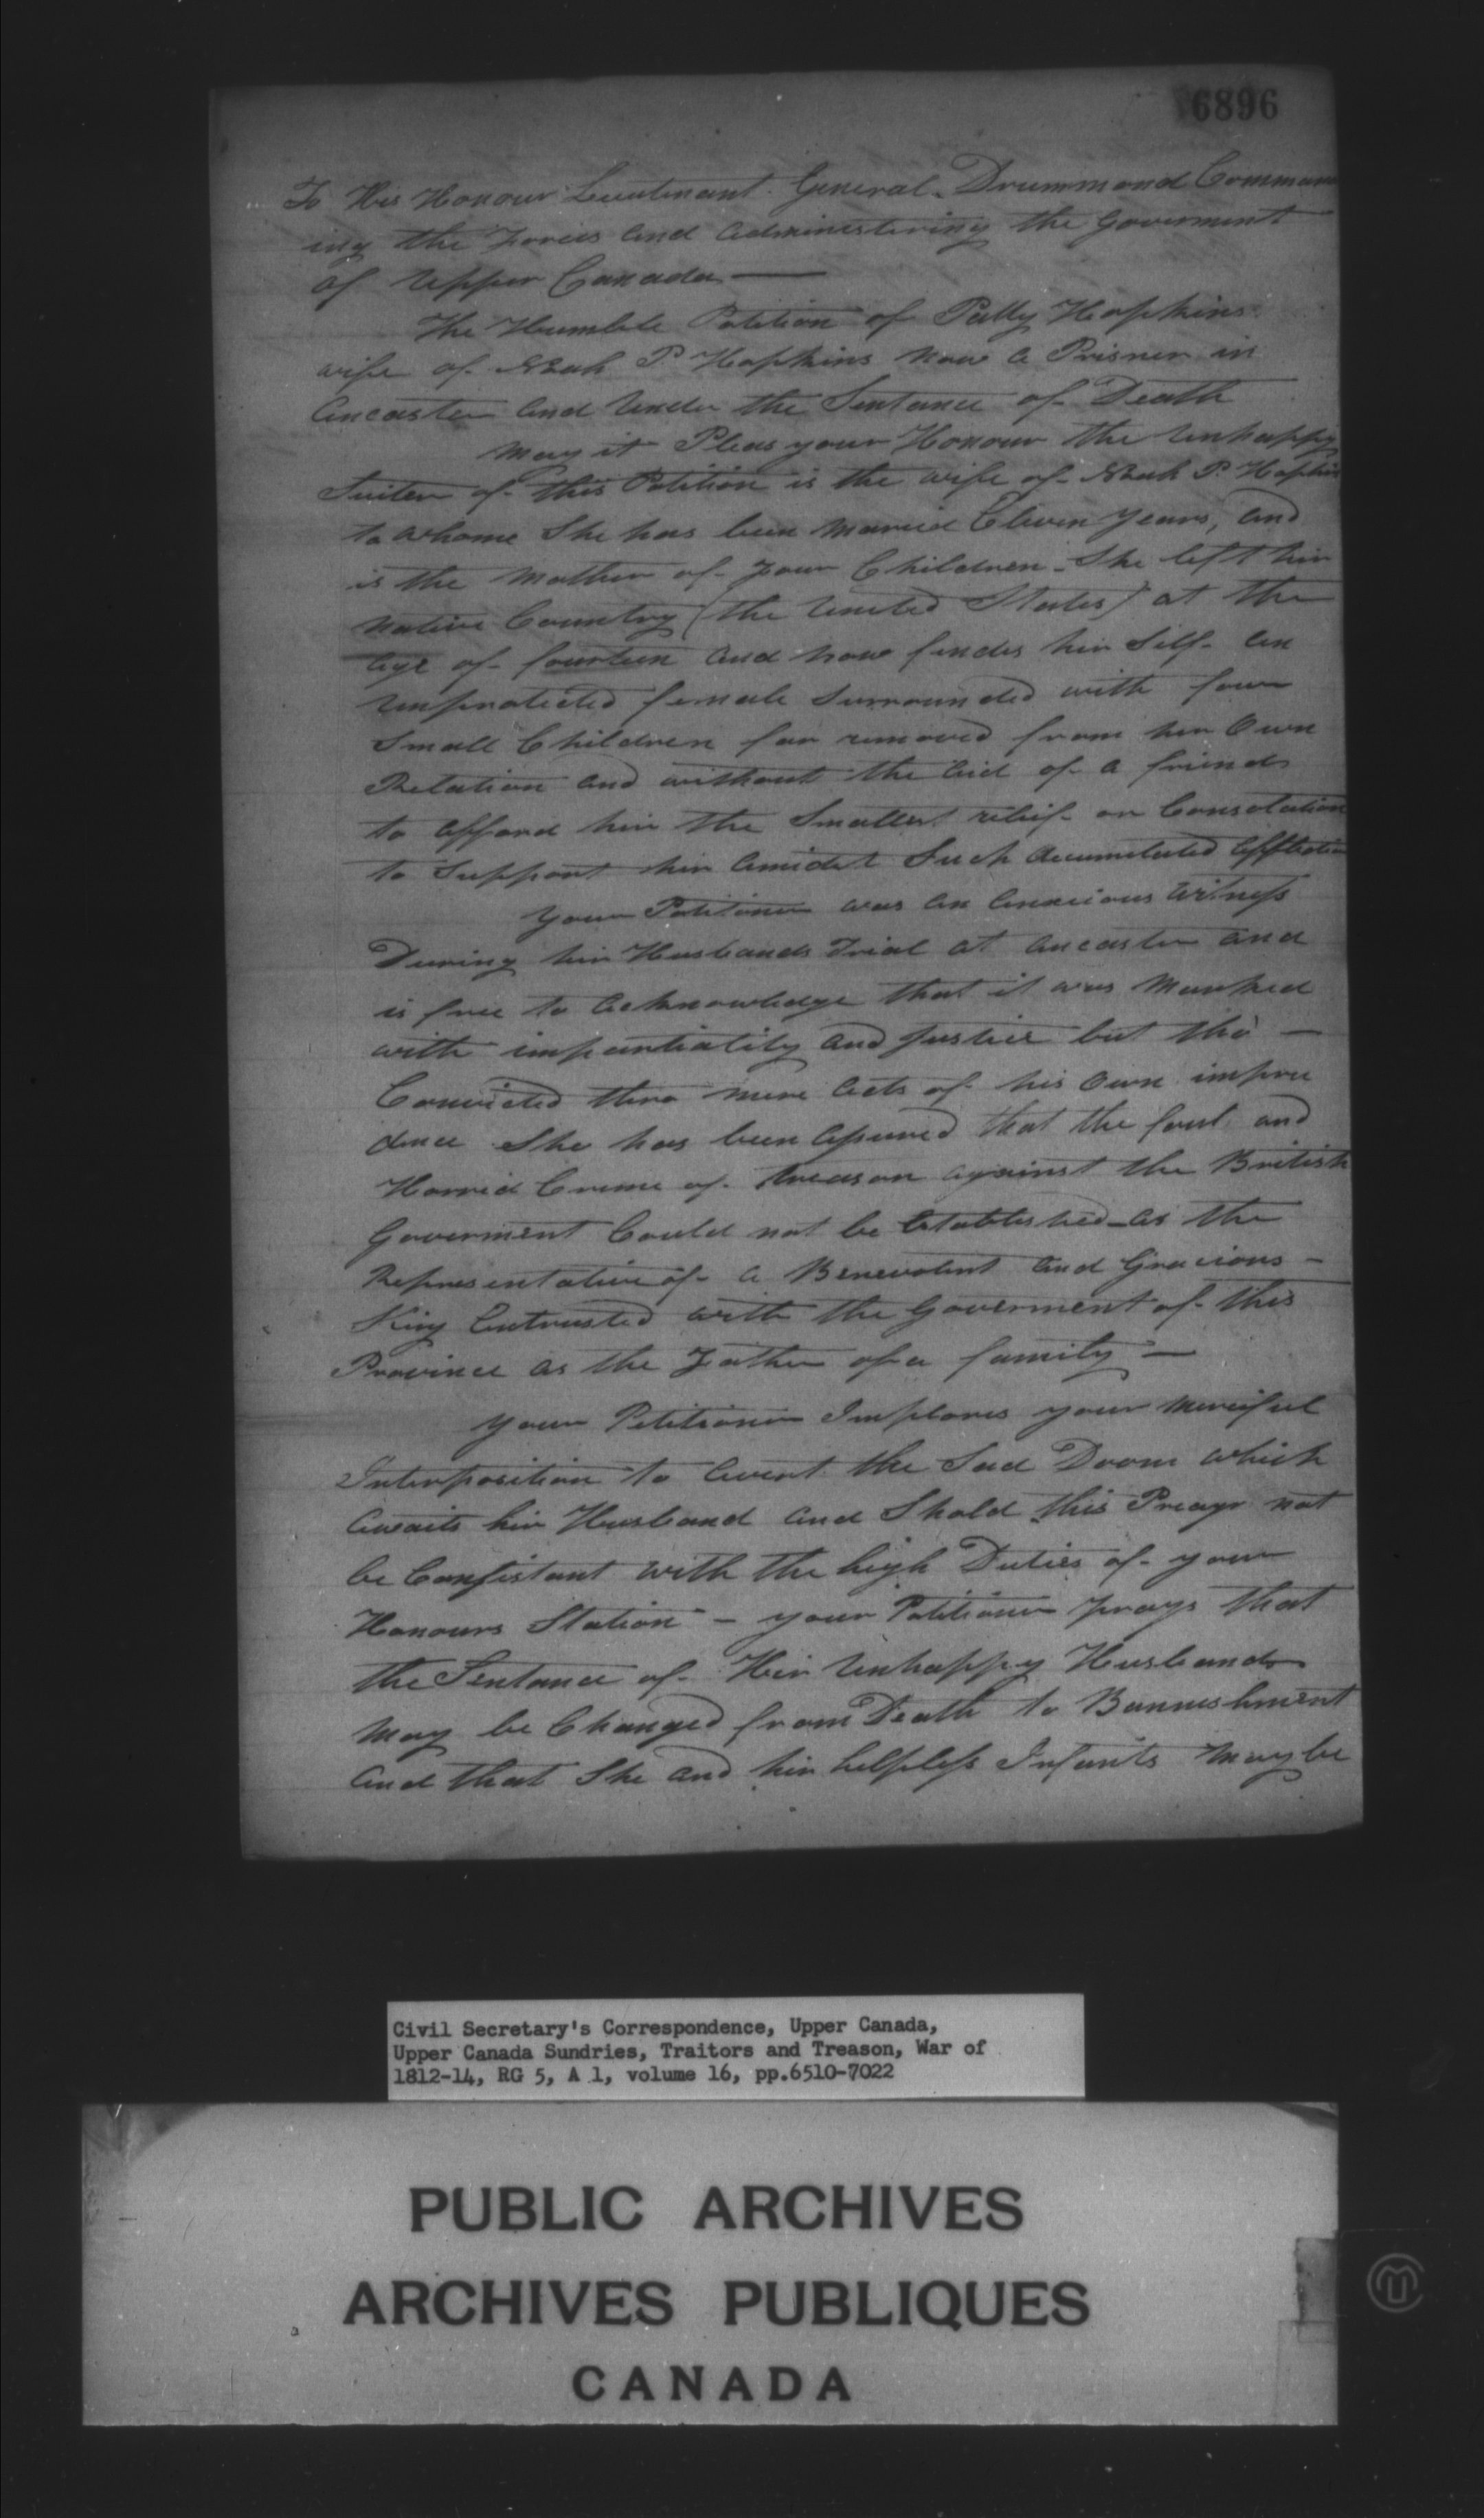 6896
To His Honour Lieutenant General Drummond Comman
ing the Forces and administering the Goverment
of Upper Canada
The Humble Petition of Polly Hopkins
wife of Noah P. Hopkins now a Prisner in
Ancaster and under the Sentance of Death
May it Pleas your Honour the unhappy
Suiter of this Petition is the wife of Noah P. Hopkins
to whome She has been Maried Eleven years, and
is the Mother of four Children - She left hir
native Country (the United States) at the
age of fourteen and now findes hir Self an
unprotected female Surrounded with four
Small Children far removed from her Own
Relation and without the aid of a friend
to afford hir the Smallest relief or Consolation
to Support hir amidst Such acumulated affliction
your Petitioner was an anxcious Witness
During hir Husbands Trial at Ancaster and
is free to acknowledge that it was Marked
with impartiality and Justice but tho' -
Convicted thro mere acts of his Own impru
dence She has been assured that the foul and
Horrid Crime of treason against the British
Goverment Could not be Established - As the
Representative of a Benevolent and Gracious -
King Entrusted with the Goverment of this
Province as the Father of a family -
your Petitioner Implores your merciful
Interposition to avert the Sad Doom which
awaits hir Husband and Shold this Prayr not
be Consistant with the high Duties of your
Honours Station - your Petitioner prays that
the Sentance of Hir unhappy Husband
May be Changed from Death to Bannishment
and that She and hir helpless Infants may be
Civil Secretary's Correspondence, Upper Canada,
Upper Canada Sundries, Traitors and Treason, War of
1812-14, RG 5, A 1, volume 16, pp.6510-7022
PUBLIC ARCHIVES
ARCHIVES PUBLIQUES
CANADA